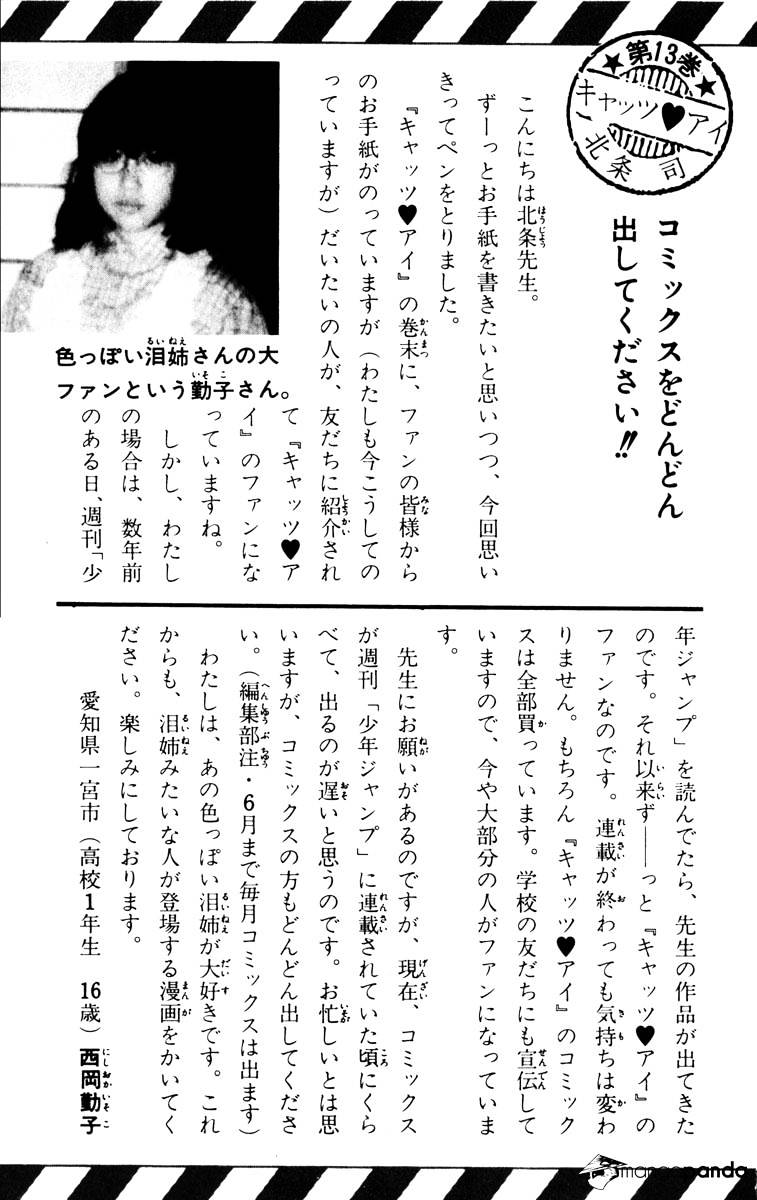 ★第13巻★
キャッツ♥アイ
北条司
コミックスをどんどん
出してください!!
こんにちは北条先生。
ずーっとお手紙を書きたいと思いつつ、今回思い
きってペンをとりました。
『キャッツ♥アイ』の巻末に、ファンの皆様から
のお手紙がのっていますが（わたしも今こうしての
っていますが）だいたいの人が、友だちに紹介され
て『キャッツ♥ア
イ』のファンにな
っていますね。
しかし、わたし
の場合は、数年前
のある日、週刊「少
色っぽい泪姉さんの大
ファンという勤子さん。
年ジャンプ」を読んでたら、先生の作品が出てきた
のです。それ以来ず――っと『キャッツ♥アイ』の
ファンなのです。連載が終わっても気持ちは変わ
りません。もちろん『キャッツ♥アイ』のコミック
スは全部買っています。学校の友だちにも宣伝して
いますので、今や大部分の人がファンになっていま
す。
先生にお願いがあるのですが、現在、コミックス
が週刊「少年ジャンプ」に連載されていた頃にくら
べて、出るのが遅いと思うのです。お忙しいとは思
いますが、コミックスの方もどんどん出してくださ
い。（編集部注・6月まで毎月コミックスは出ます）
わたしは、あの色っぽい泪姉が大好きです。これ
からも、泪姉みたいな人が登場する漫画をかいてく
ださい。楽しみにしております。
愛知県一宮市（高校1年生　16歳）西岡勤子
mangapanda